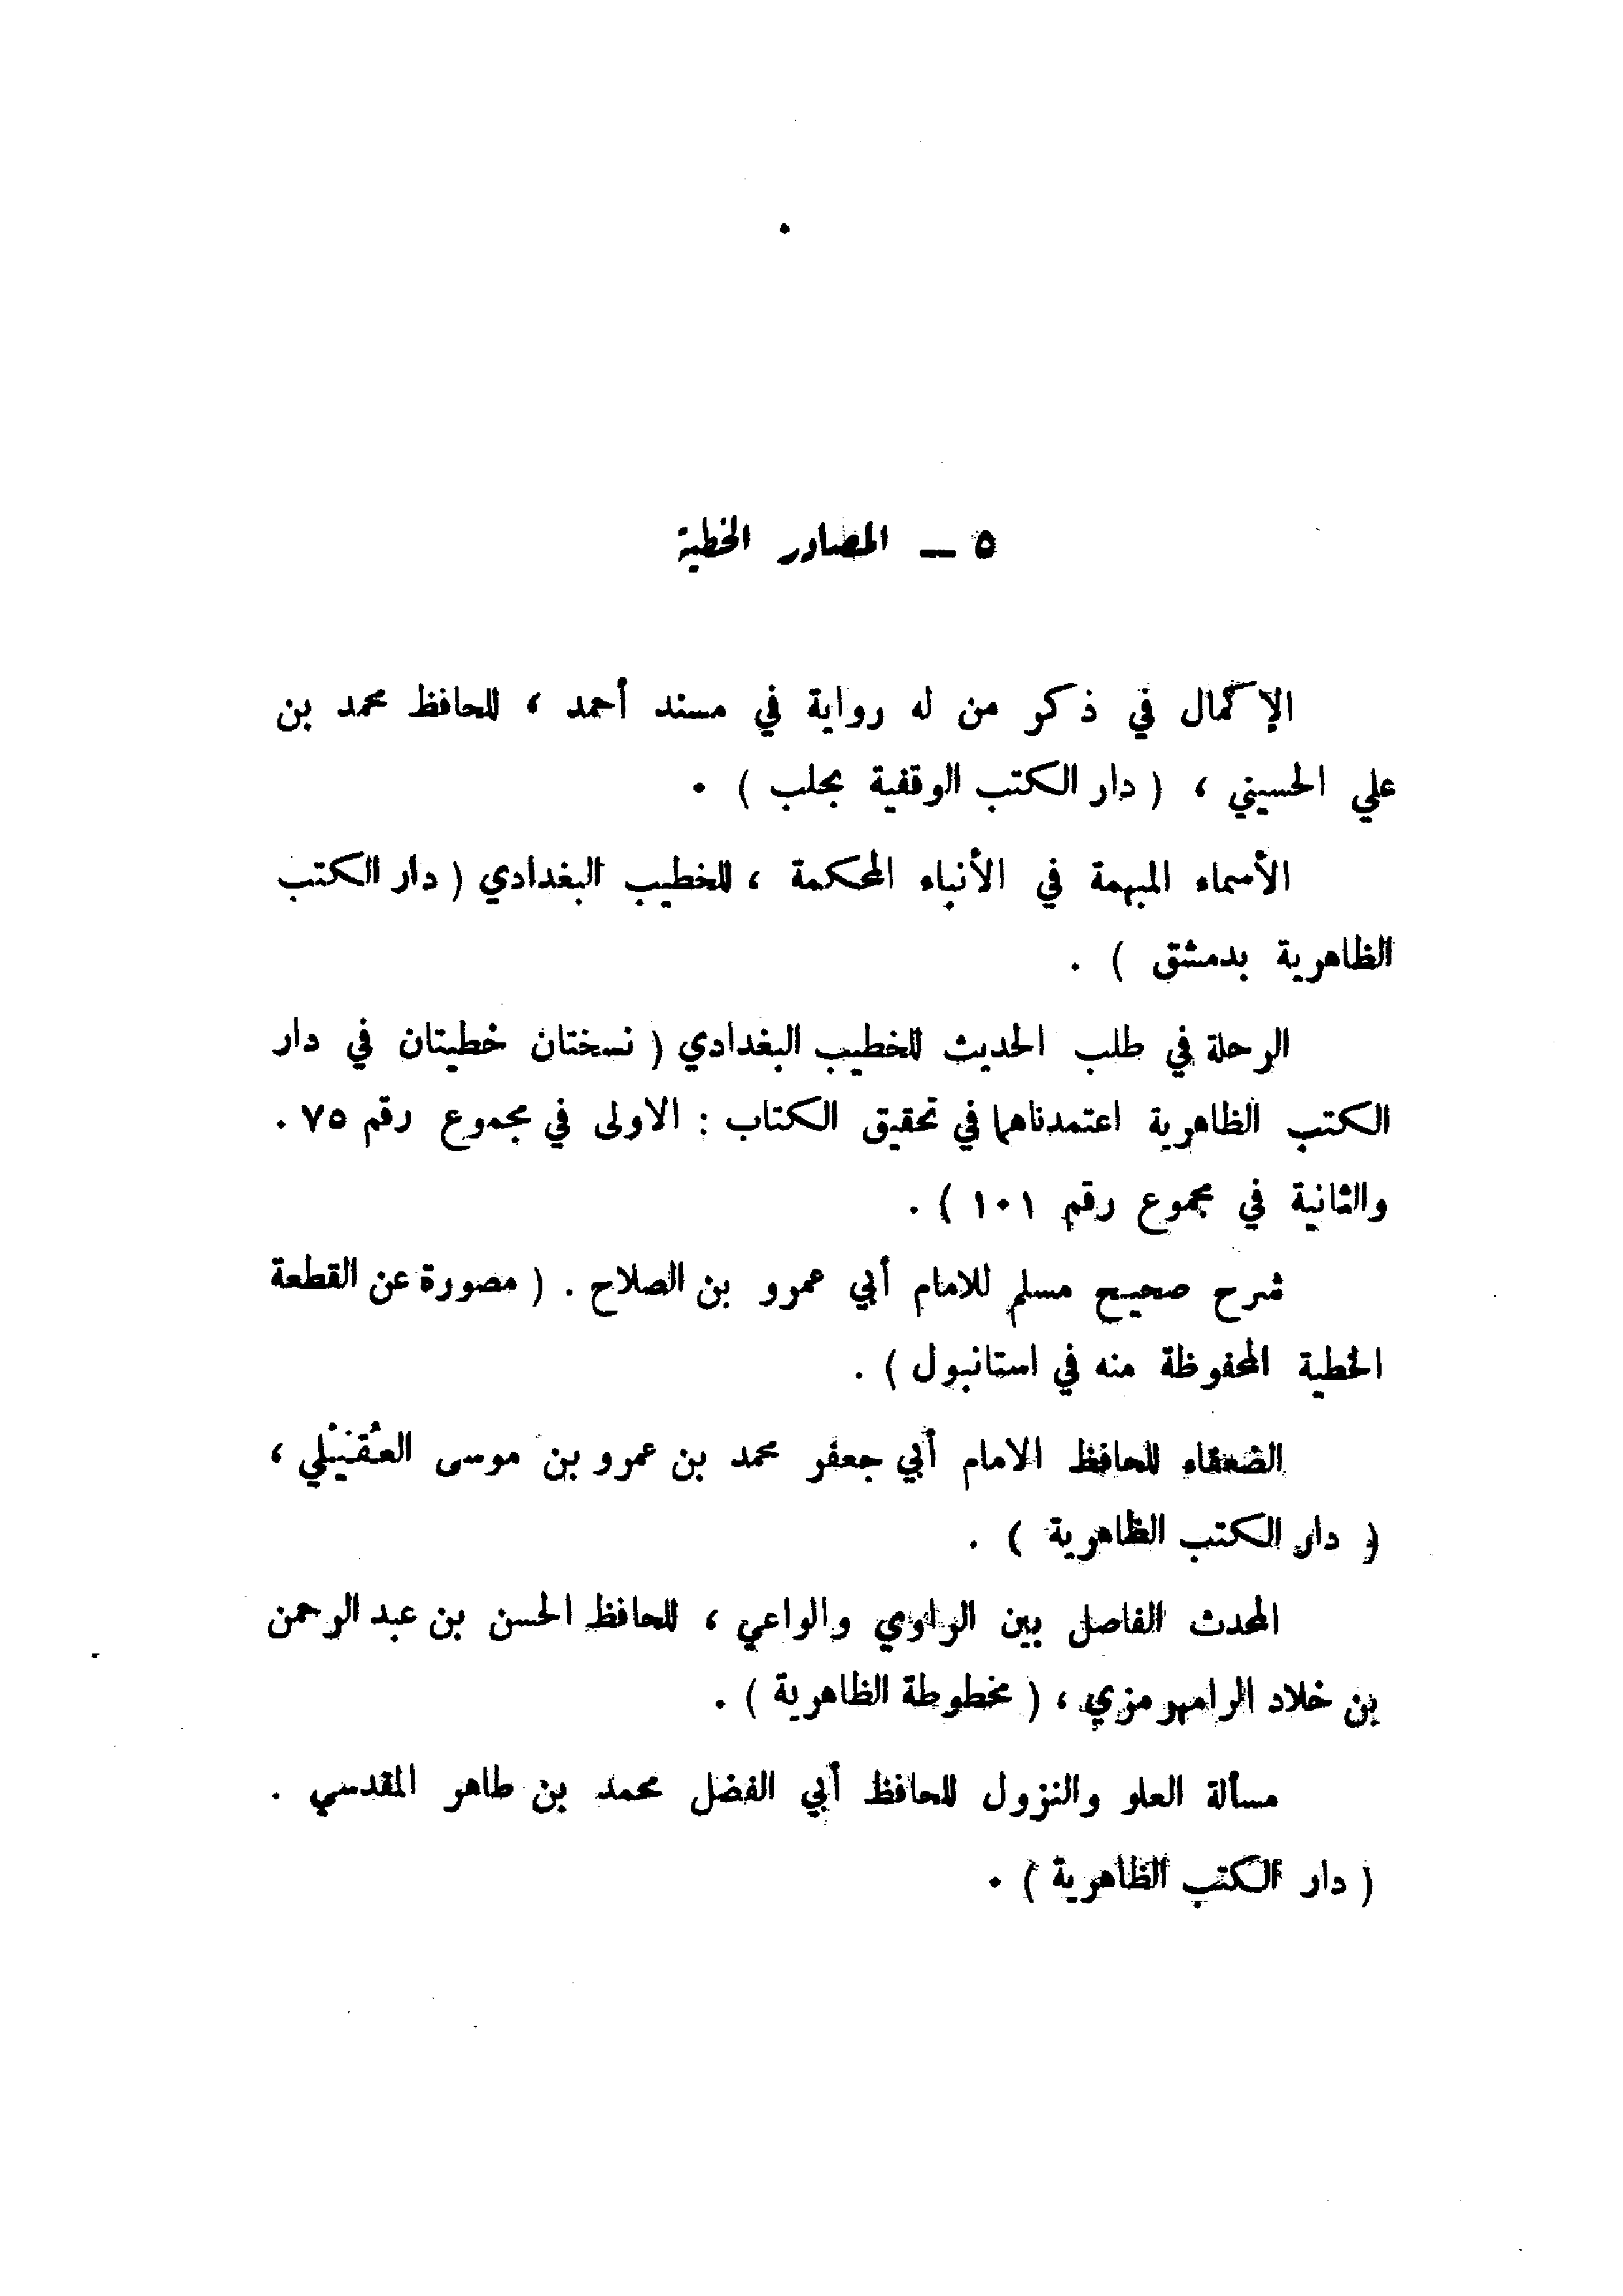 ٥ ـ المصادر الخطية
الإكمال في ذكر من له رواية في مسند أحمد ، للحافظ محمد بن
علي الحسيني ، ( دار الكتب الوقفية بحلب ) .
الأسماء المبهمة في الأنباء المحكمة ، للخطيب البغدادي ( دار الكتب
الظاهرية بدمشق ) .
الرحلة في طلب الحديث للخطيب البغدادي ( نسختان خطيتان في دار
الكتب الظاهرية اعتمدناهما في تحقيق الكتاب : الاولى في مجموع رقم ٧٥ .
والثانية في مجموع رقم ١٠١ ) .
شرح صحيح مسلم للامام أبي عمرو بن الصلاح . ( مصورة عن القطعة
الخطية المحفوظة منه في استانبول ) .
الضعفاء للحافظ الامام أبي جعفر محمد بن عمرو بن موسى العُقَيْلي ،
( دار الكتب الظاهرية ) .
المحدث الفاصل بين الراوي والواعي ، للحافظ الحسن بن عبد الرحمن
بن خلاد الرامهرمزي ، ( مخطوطة الظاهرية ) .
مسألة العلو والنزول للحافظ أبي الفضل محمد بن طاهر المقدسي .
( دار الكتب الظاهرية ) .